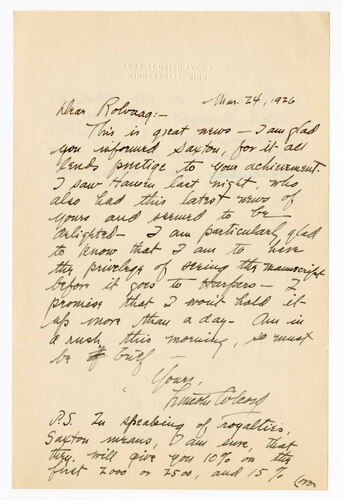 ALDRICH AVE. S.
MINNEAPOLIS, MINN.
Mar. 24, 1926
Dear Rolvaag:-
This is great news - I am glad
you informed Saxton, for it all
lends prestige to your achievement.
I saw Hansen last night, who
also had this latest news of
yours and seemed to be
delighted - I am particularly glad
to know that I am to have
the privilege of seeing the manuscript
before it goes to Harpers - I
promise that I won't hold it
up more than a day - Am in
a rush this morning, so must
be brief -
Yours,
Lincoln Colcord
P.S. In speaking of royalties,
Saxton means, I am sure, that
they will give you 10% on the
first 2000 or 2500, and 15%
(over